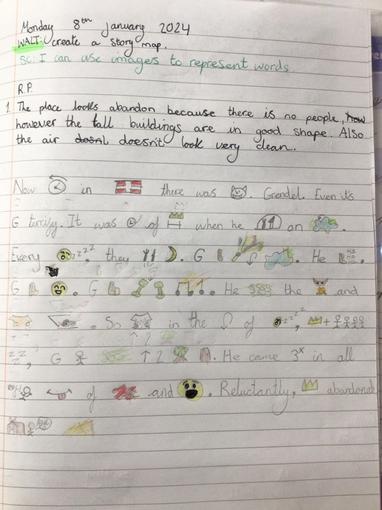 Monday 8th January 2024
WALT: create a story map.
SC: I can use images to represent words
R.P.
1. The place looks abandon because there is no people, how
however the tall buildings are in good shape. Also
the air doesnt doesn't look very clean.
Now in there was . Grendel. Even its
G terrify. It was of when he on .
Every zzz they . G . He .
G . G . He the and
. So in the of zzz, +
zz, G ↑ 2 . He came 3x in all
of and . Reluctantly, abandoned